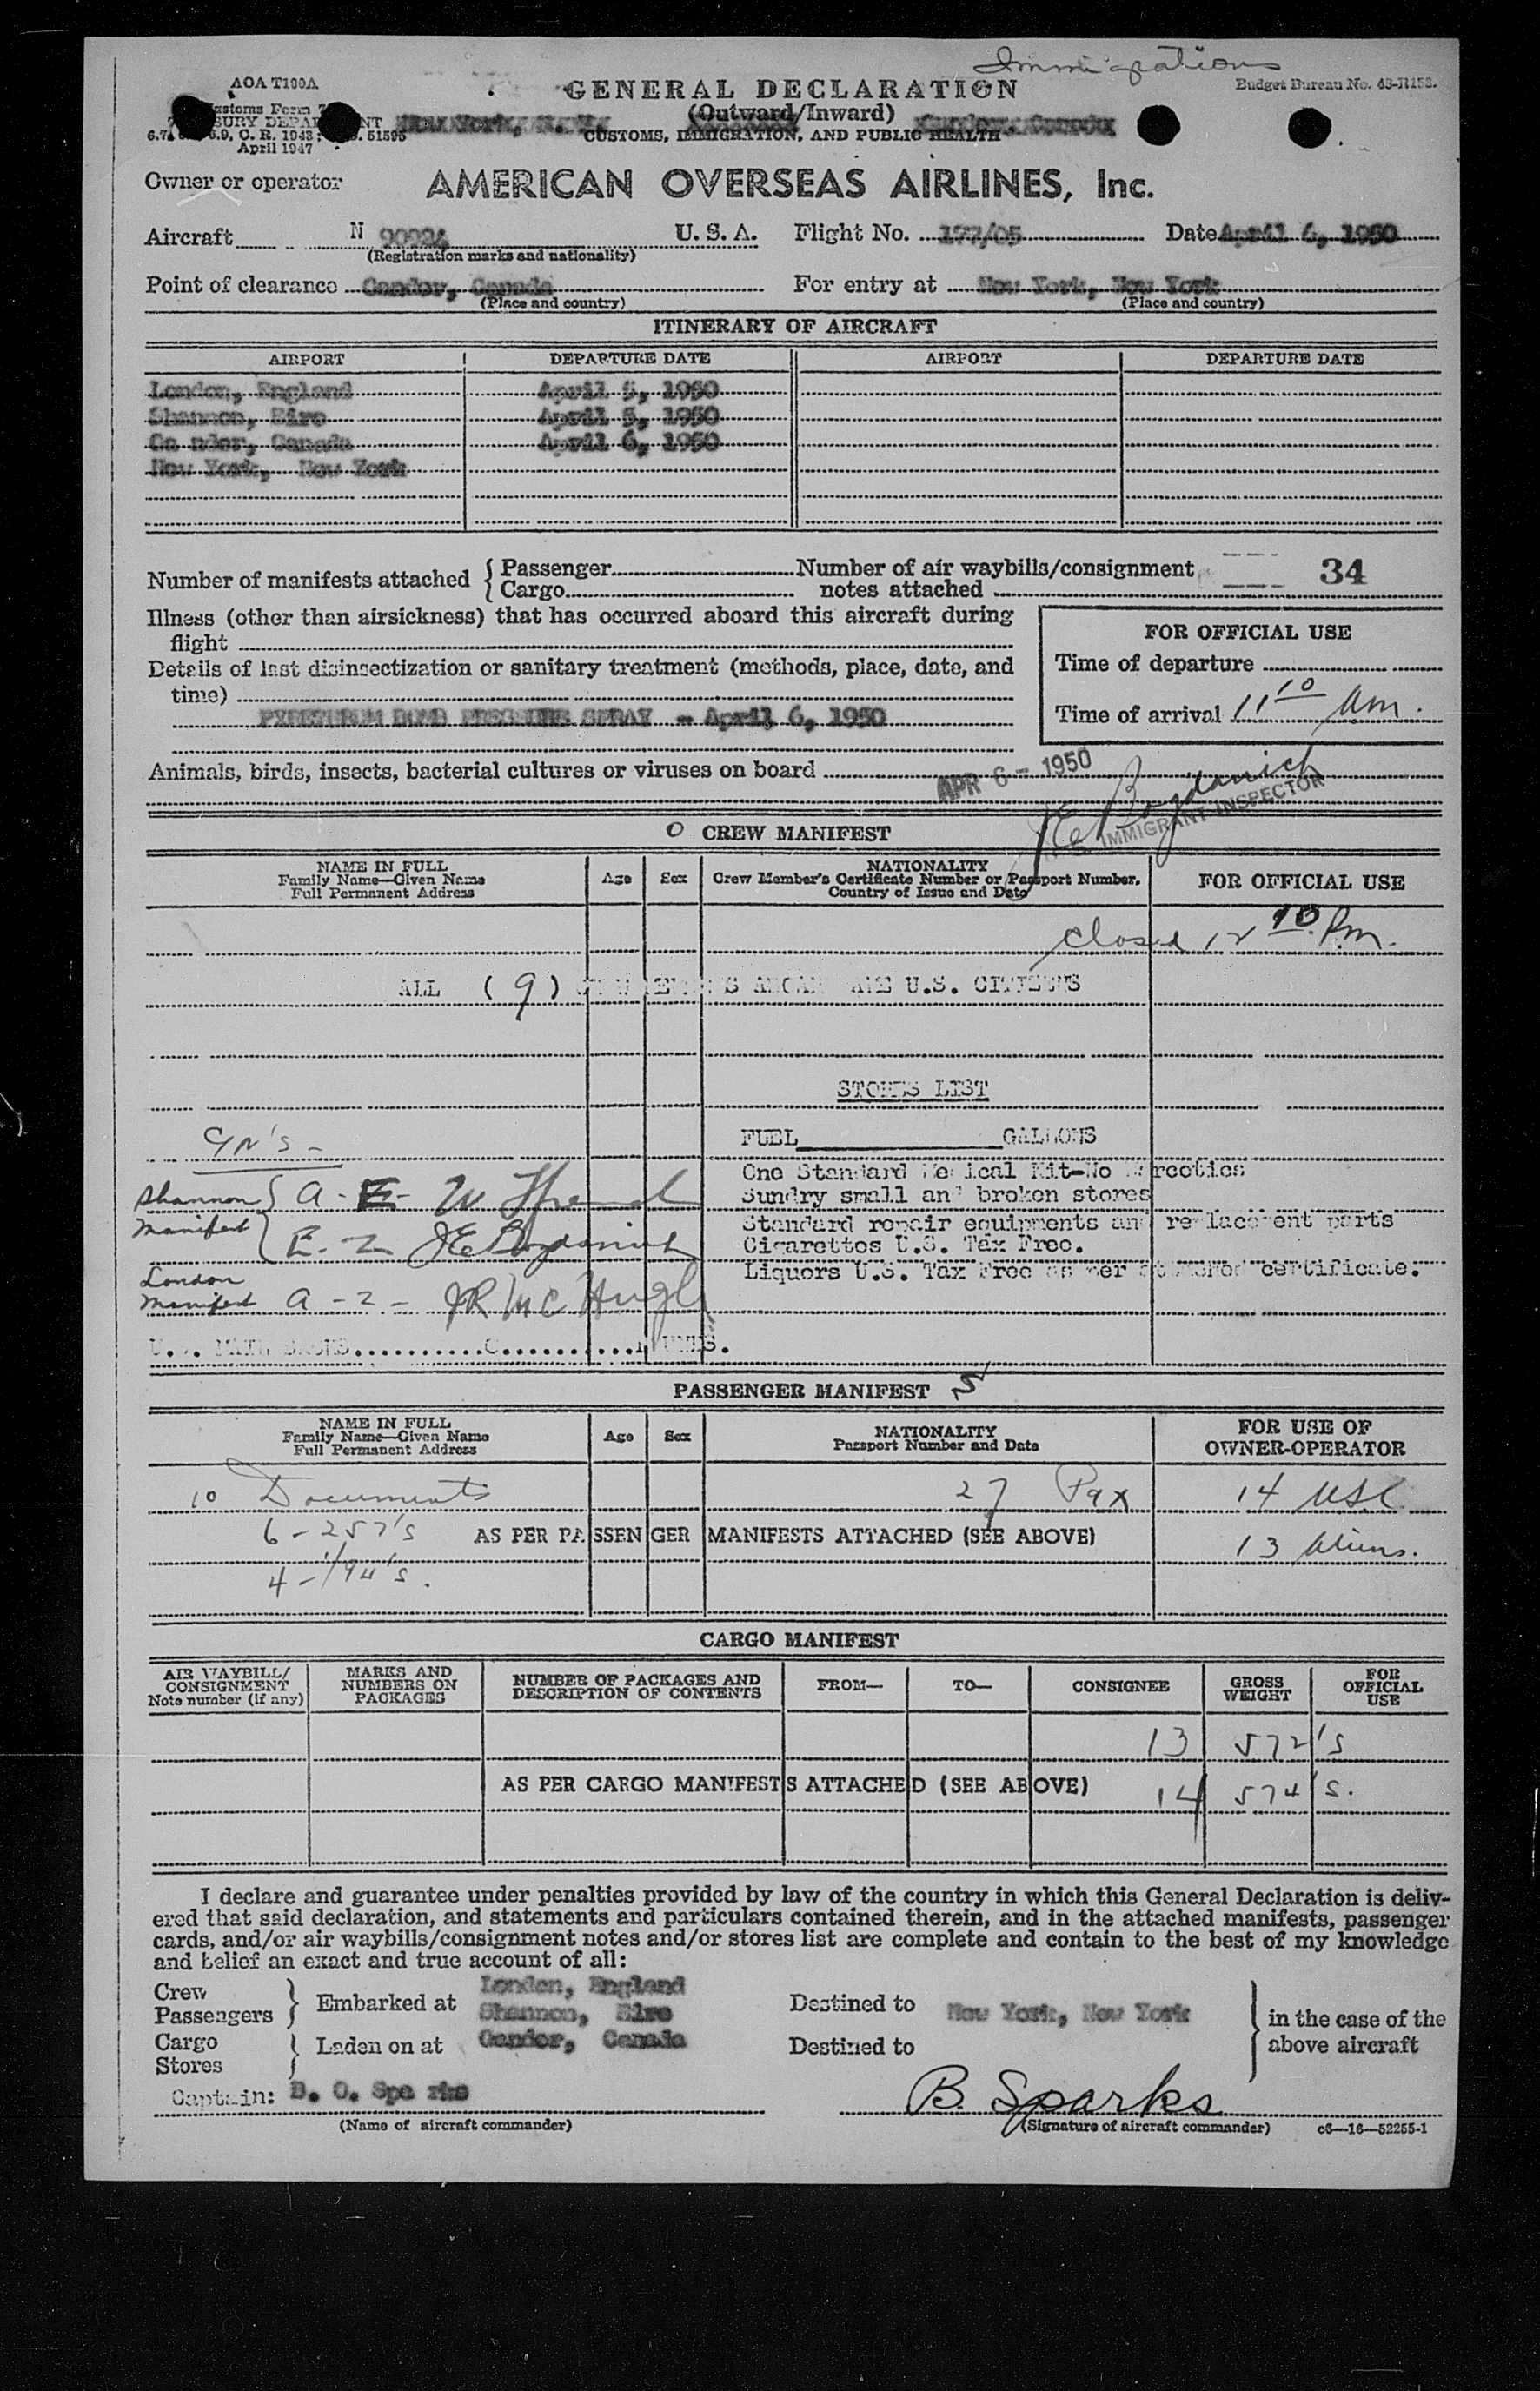 Immigration
AOA T100A
GENERAL DECLARATION
Budget Bureau No. 43-R158.
Customs Form
(Outward/Inward)
TREASURY DEPARTMENT New York, N.Y.
C. R. 1943; 51595
CUSTOMS, IMMIGRATION, AND PUBLIC HEALTH
April 1947
Owner or operator AMERICAN OVERSEAS AIRLINES, Inc.
Aircraft N 90924 U. S. A. Flight No. Date April 6, 1950
(Registration marks and nationality)
Point of clearance Gander, Canada For entry at New York, New York
(Place and country) (Place and country)
ITINERARY OF AIRCRAFT
AIRPORT DEPARTURE DATE AIRPORT DEPARTURE DATE
London, England April 5, 1950
Shannon, Eire April 5, 1950
Ga nder, Canada April 6, 1950
New York, New York
Number of manifests attached { Passenger Number of air waybills/consignment 34
Cargo notes attached
Illness (other than airsickness) that has occurred aboard this aircraft during
flight
FOR OFFICIAL USE
Details of last disinsectization or sanitary treatment (methods, place, date, and
time)
Time of departure
PYRETHRUM BOMB PRESSURE SPRAY - April 6, 1950
Time of arrival 11 10 Am.
Animals, birds, insects, bacterial cultures or viruses on board
APR 6 - 1950
JE Bogdanich
IMMIGRANT INSPECTOR
O CREW MANIFEST
NAME IN FULL
Family Name—Given Name
Full Permanent Address
Age Sex
NATIONALITY
Crew Member's Certificate Number or Passport Number,
Country of Issue and Date
FOR OFFICIAL USE
closed 12 10 P.m.
ALL (9) U.S. CITIZENS
STORES LIST
FUEL GALLONS
One Standard Medical Kit-No Narcotics
Sundry small and broken stores
Standard repair equipments and replacement parts
Cigarettes U.S. Tax Free.
Liquors U.S. Tax Free as per attached certificate.
Shannon Manifest { A -
E - 2 JE Bogdanich
London Manifest A - 2 - JR McHugh
PASSENGER MANIFEST S
NAME IN FULL
Family Name—Given Name
Full Permanent Address
Age Sex
NATIONALITY
Passport Number and Date
FOR USE OF
OWNER-OPERATOR
10 Documents 27 Pax 14 USC
6 - 257's AS PER PASSENGER MANIFESTS ATTACHED (SEE ABOVE) 13 Aliens.
4 - 194's.
CARGO MANIFEST
AIR WAYBILL/
CONSIGNMENT
Note number (if any)
MARKS AND
NUMBERS ON
PACKAGES
NUMBER OF PACKAGES AND
DESCRIPTION OF CONTENTS
FROM— TO— CONSIGNEE
GROSS
WEIGHT
FOR
OFFICIAL
USE
13 572's
AS PER CARGO MANIFESTS ATTACHED (SEE ABOVE) 14 574's.
I declare and guarantee under penalties provided by law of the country in which this General Declaration is deliv-
ered that said declaration, and statements and particulars contained therein, and in the attached manifests, passenger
cards, and/or air waybills/consignment notes and/or stores list are complete and contain to the best of my knowledge
and belief an exact and true account of all:
Crew
Passengers } Embarked at London, England
Shannon, Eire Destined to New York, New York
Cargo
Stores } Laden on at Gander, Canada Destined to
} in the case of the
above aircraft
Captain: B. O. Spa rks B. Sparks
(Name of aircraft commander) (Signature of aircraft commander) c6—16—52255-1